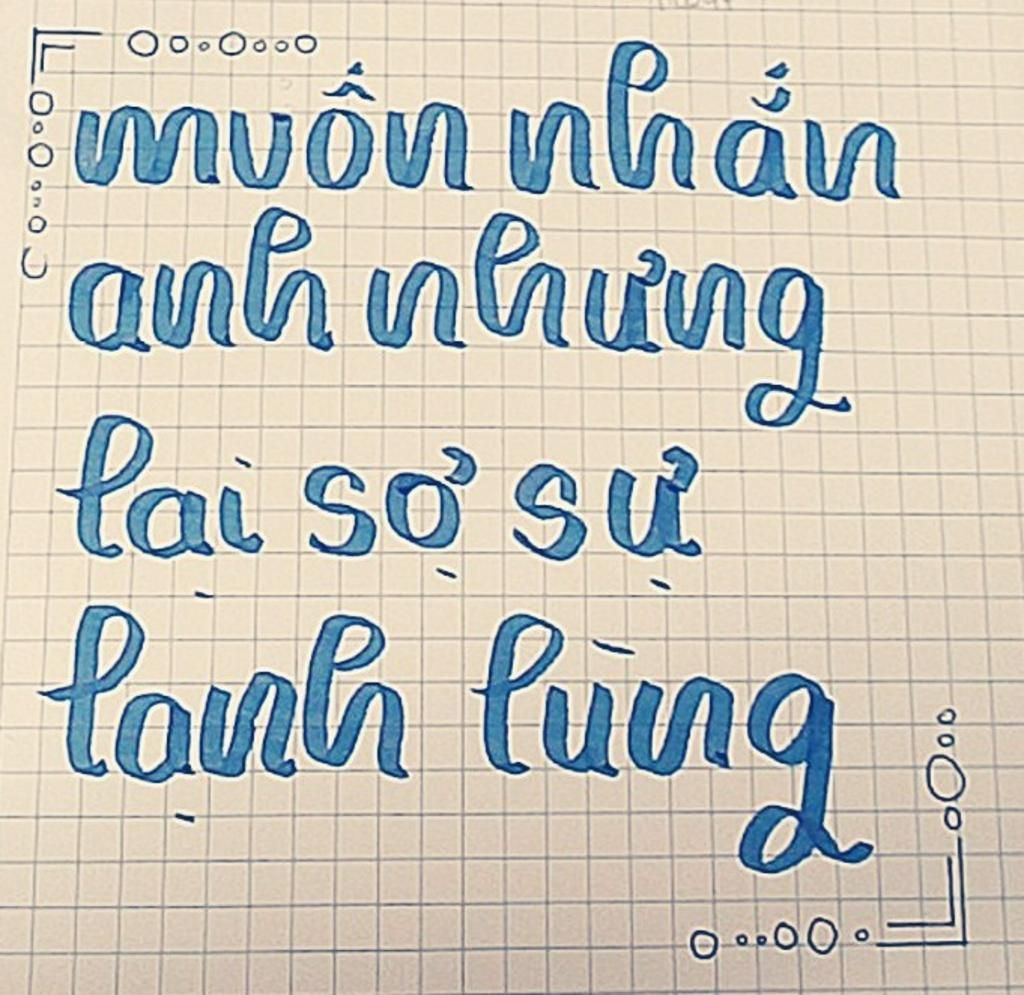 muốn nhắn
anh nhưng
lại sợ sự
lạnh lùng